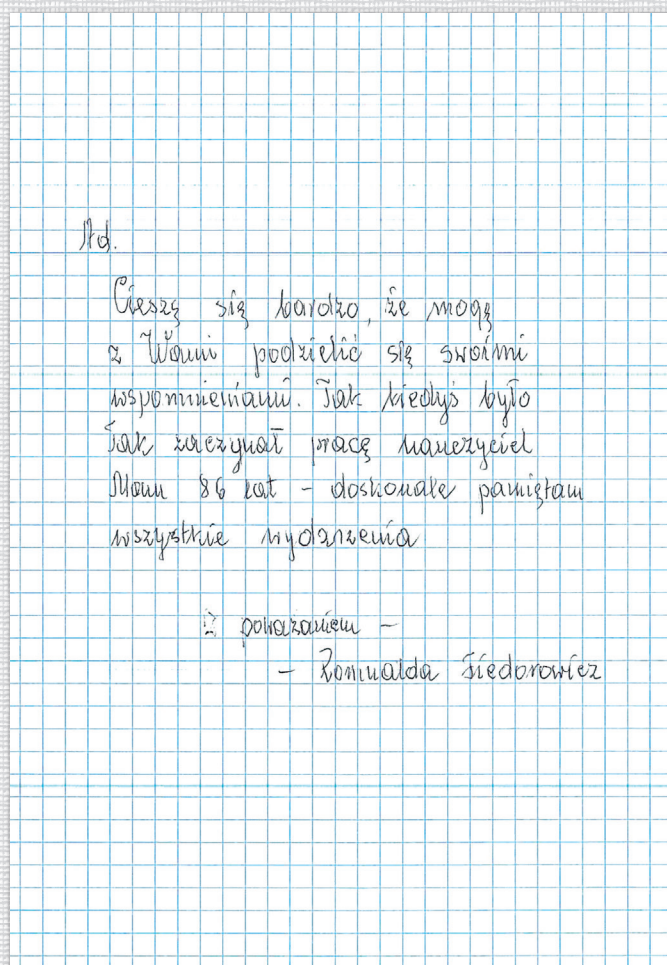 Ad.
Cieszę się bardzo, że mogę
z Wami podzielić się swoimi
wspomnieniami. Tak kiedyś było
Tak zaczynał pracę nauczyciel
Mam 86 lat – doskonale pamiętam
wszystkie wydarzenia
Z poważaniem –
– Romualda Fiedorowicz